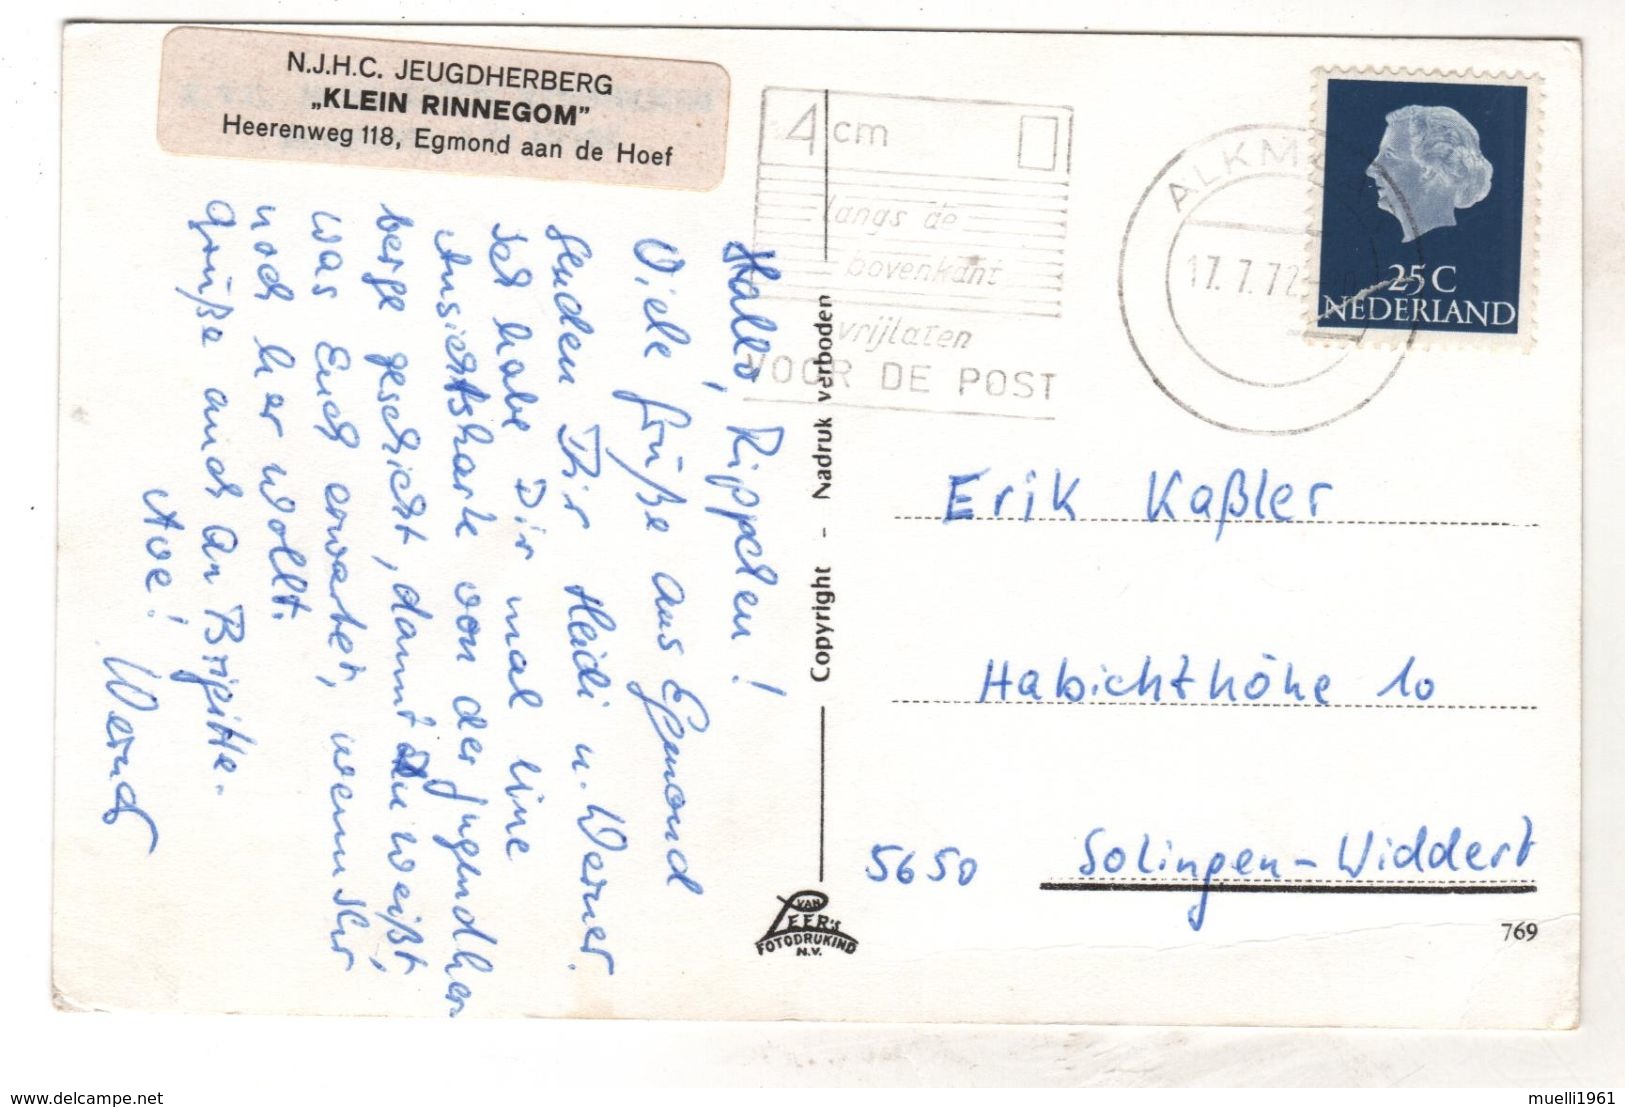 N.J.H.C. JEUGDHERBERG
„KLEIN RINNEGOM”
Heerenweg 118, Egmond aan de Hoef
4 cm
langs de
bovenkant
vrijlaten
VOOR DE POST
ALKMAAR
17.7.72
25 C
NEDERLAND
Hallo, Rippchen!
Viele Grüße aus Egmond
senden Dir Heidi u. Werner.
Ich habe Dir mal eine
Ansichtskarte von der Jugendher-
berge geschickt, damit Du weißt,
was Euch erwartet, wenn Ihr
noch her wollt.
Grüße auch an Brigitte.
Ave!
Werner
Copyright - Nadruk verboden
Erik Kaßler
Habichthöhe 10
5650 Solingen-Widdert
VAN
LEER's
FOTODRUKIND
N.V.
769
www.delcampe.net
muelli1961